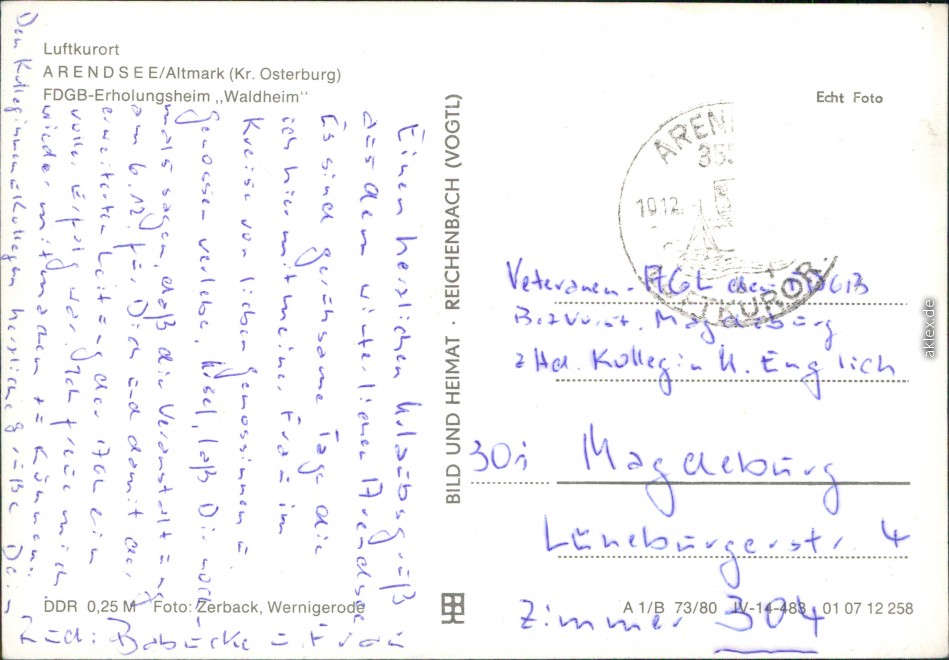 Luftkurort
ARENDSEE/Altmark (Kr. Osterburg)
FDGB-Erholungsheim „Waldheim"
Echt Foto
Einen herzlichen Urlaubsgruß
aus dem winterlichen Arendsee
Es sind geruhsame Tage die
ich hier mit meiner Frau im
Kreise von lieben Genossinnen u.
Genossen verlebe. Usel, laß Dir noch-
mals sagen, daß die Veranstaltung
am 6.12. für Dich und damit der
erweiterten Leitung der AGL ein
voller Erfolg war. Ich freue mich
wieder mitmachen zu können.
Den Kolleginnen u. Kollegen herzliche Grüße Dein
Rudi Babucke u. Frau
BILD UND HEIMAT · REICHENBACH (VOGTL)
AREN
355
10.12.
LUFTKURORT
Veteranen-AGL des FDGB
Bez. Vorst. Magdeburg
z Hd. Kollegin U. Englich
301 Magdeburg
Lüneburgerstr. 4
Zimmer 304
DDR 0,25 M Foto: Zerback, Wernigerode
A 1/B 73/80 IV-14-483 01 07 12 258
aklex.de